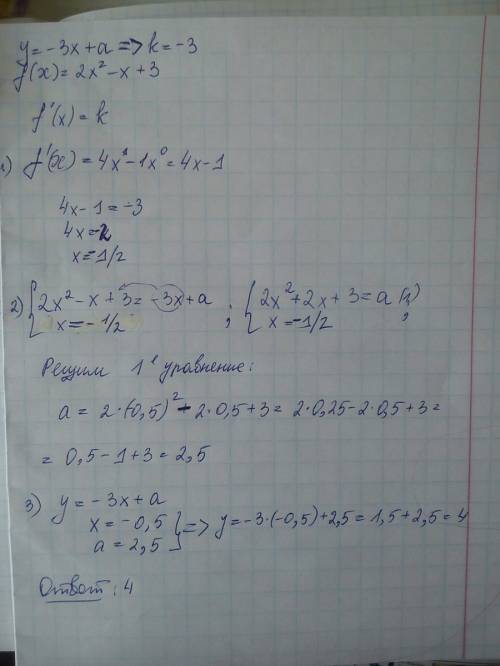 y = -3x + a => k = -3
f(x) = 2x² - x + 3
f'(x) = k
1) f'(x) = 4x¹ - 1x⁰ = 4x - 1
4x - 1 = -3
4x = -2
x = -1/2
2) { 2x² - x + 3 = -3x + a ; { 2x² + 2x + 3 = a (1)
x = -1/2 x = -1/2 ;
Решим 1е уравнение:
a = 2·(0,5)² - 2·0,5 + 3 = 2·0,25 - 2·0,5 + 3 =
= 0,5 - 1 + 3 = 2,5
3) y = -3x + a
x = -0,5 } => y = -3·(-0,5) + 2,5 = 1,5 + 2,5 = 4
a = 2,5
Ответ: 4